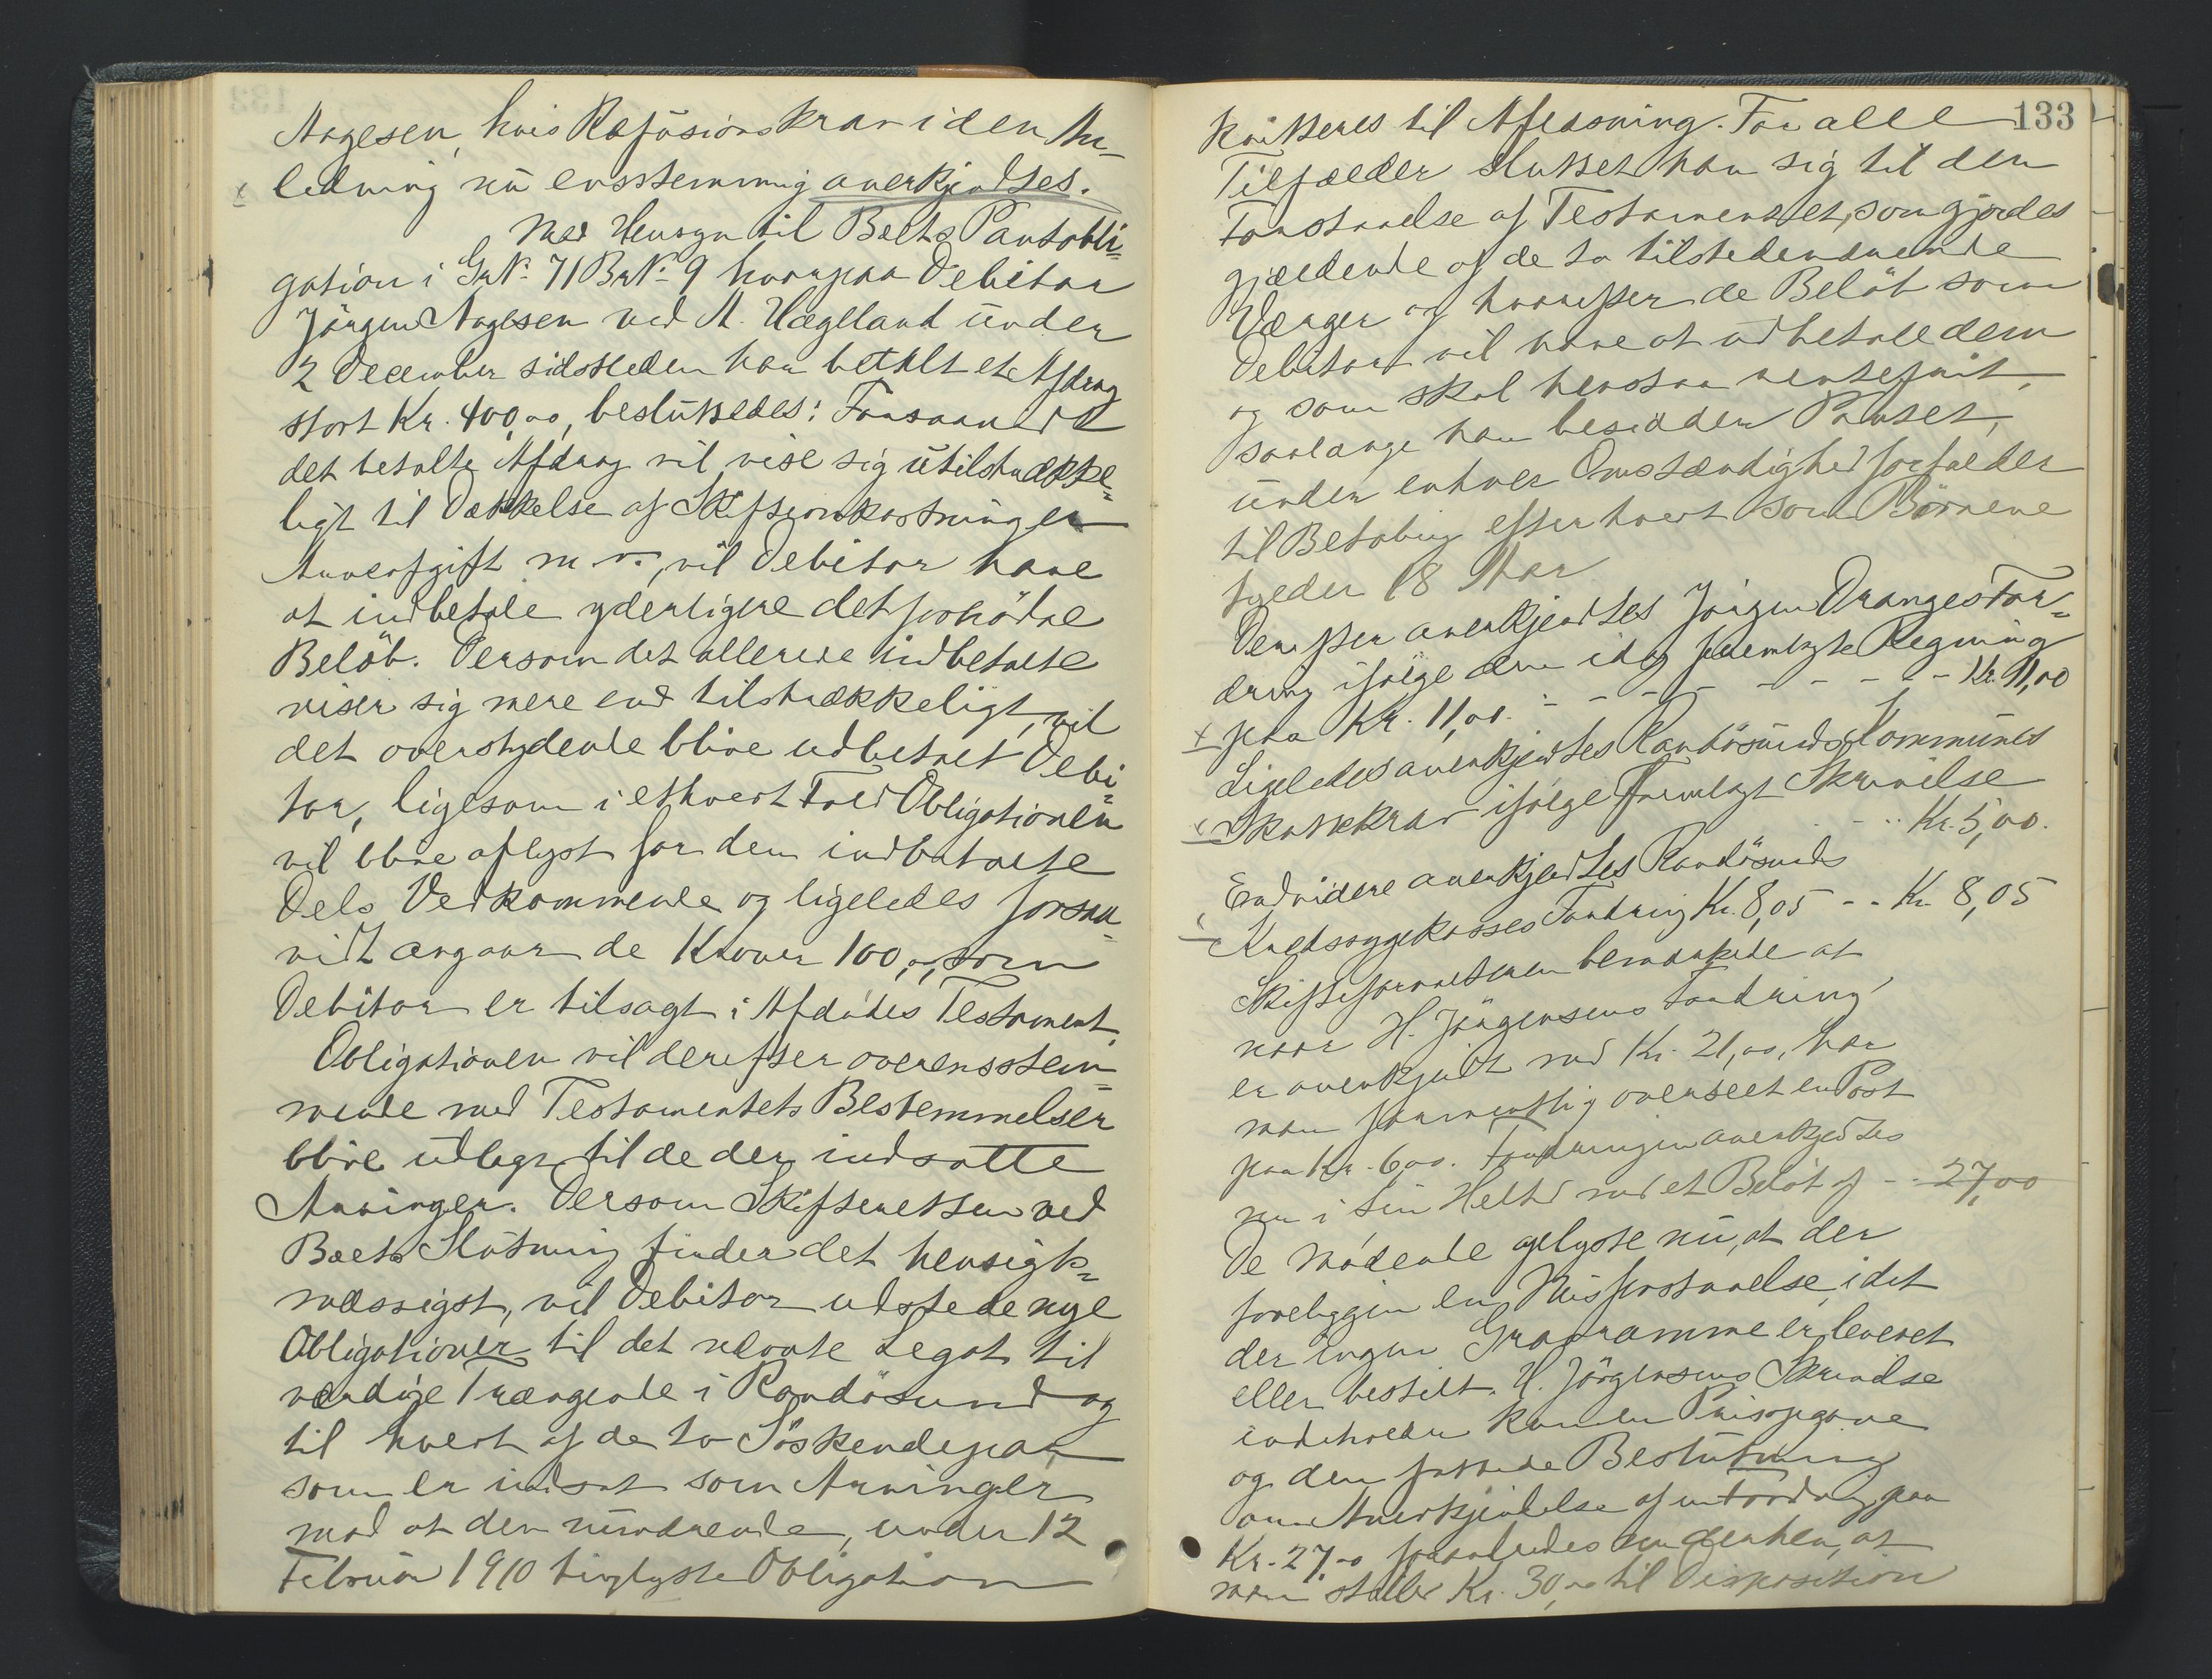 Aagesen, hvis Refusionskrav i den An-
x ledning nu ensstemmig anerkjendtes.
Med Hensyn til Boets Pantobli-
gation i GrN. 71 BrN. 9 hvorpaa Debitor
Jörgen Aagesen ved A. Hægeland under
2 December sidstleden har betalt et Afdrag
stort Kr. 400,00, besluttedes: Forsaavidt
det betalte Afdrag vil vise sig utilstrække-
ligt til Dækkelse af Skifteomkostninger
Arveafgift m. v., vil Debitor have
at indbetale yderligere det fornödne
Belöb. Dersom det allerede indbetalte
viser sig mere end tilstrækkeligt, vil
det overskydende blive udbetalt Debi-
tor, ligesom i ethvert Fald Obligationen
vil blive aflyst for den indbetalte
Dels Vedkommende og ligeledes forsaa-
vidt angaar de Kroner 100,00, som
Debitor er tilsagt i Afdödes Testament.
Obligationen vil derefter overensstem-
mende med Testamentets Bestemmelser
blive udlagt til de deri indsatte
Arvinger. Dersom Skifteretten ved
Boets Slutning finder det hensigts-
mæssigst, vil Debitor udstede nye
Obligationer til det nævnte Legat til
værdige Trængende i Randösund og
til hvert af de to Söskendepar
som er indsat som Arvinger
mod at den nuværende, under 12
Februar 1910 tinglyste Obligation
133
kvitteres til Aflæsning. For alle
Tilfælder sluttet han sig til den
Forstaaelse af Testamentet, som gjordes
gjældende af de to tilstedeværende
Værger og hvorefter de Belöb som
Debitor vil have at udbetale dem
og som skal henstaa rentefrit,
saalænge han besidder Pantet,
under enhver Omstændighed forfalder
til Betaling efterhvert som Börnene
fylder 18 Aar
Derefter anerkjendtes Jörgen Dranges For-
dring ifölge den idag fremlagte Regning
x paa Kr. 11,00. - - - - - - - - Kr. 11,00
Ligeledes anerkjendtes Randösunds Kommunes
x Skattekrav ifölge fremlagt Skrivelse
- - .. Kr. 5,00.
Endvidere anerkjendtes Randösunds
x Kredssygekasses Fordring Kr. 8,05 - - Kr. 8,05
Skifteforvalteren bemærkede at
naar H. Jörgensens Fordring
er anerkjendt med Kr. 21,00, har
man formentlig overseet en Post
paa Kr. 6,00. Fordringen anerkjendtes
nu i sin Helhed med et Belöb af - - 27,00
De mödende oplyste nu, at der
foreligger en Misforstaaelse, idet
der ingen Gravramme er leveret
eller bestilt. H. Jörgensens Skrivelse
indeholder kun en Prisopgave
og den fattede Beslutning
om Anerkjendelse af en Fordring paa
Kr. 27,00 forandredes nu derhen, at
man stiller Kr. 30,00 til Disposition